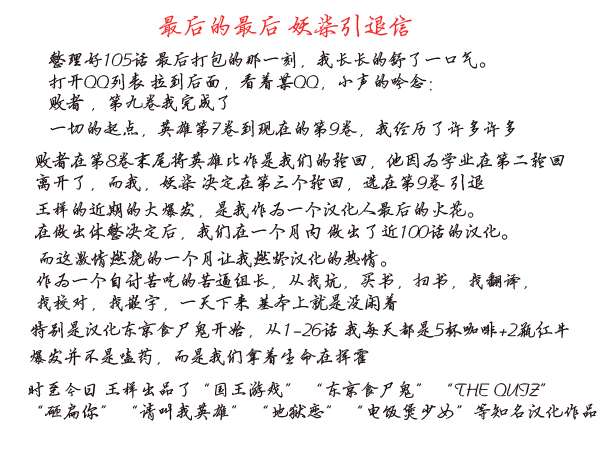 最后的最后 妖柒引退信
整理好105话 最后打包的那一刻，我长长的舒了一口气。
打开QQ列表 拉到后面，看着某QQ，小声的吟念：
败者，第九卷我完成了
一切的起点，英雄第7卷到现在的第9卷，我经历了许多许多
败者在第8卷末尾将英雄比作是我们的轮回，他因为学业在第二轮回
离开了，而我，妖柒 决定在第三个轮回，选在第9卷 引退
王样的近期的大爆发，是我作为一个汉化人最后的火花。
在做出休整决定后，我们在一个月内 做出了近100话的汉化。
而这激情燃烧的一个月让我燃烬汉化的热情。
作为一个自讨苦吃的苦逼组长，从找坑，买书，扫书，找翻译，
找校对，找嵌字，一天下来 基本上就是没闲着
特别是汉化东京食尸鬼开始，从1-26话 我每天都是5杯咖啡+2瓶红牛
爆发并不是嗑药，而是我们拿着生命在挥霍
时至今日 王样出品了“国王游戏” “东京食尸鬼” “THE QUIZ”
“砸扁你” “请叫我英雄” “地狱恋” “电饭煲少女”等知名汉化作品